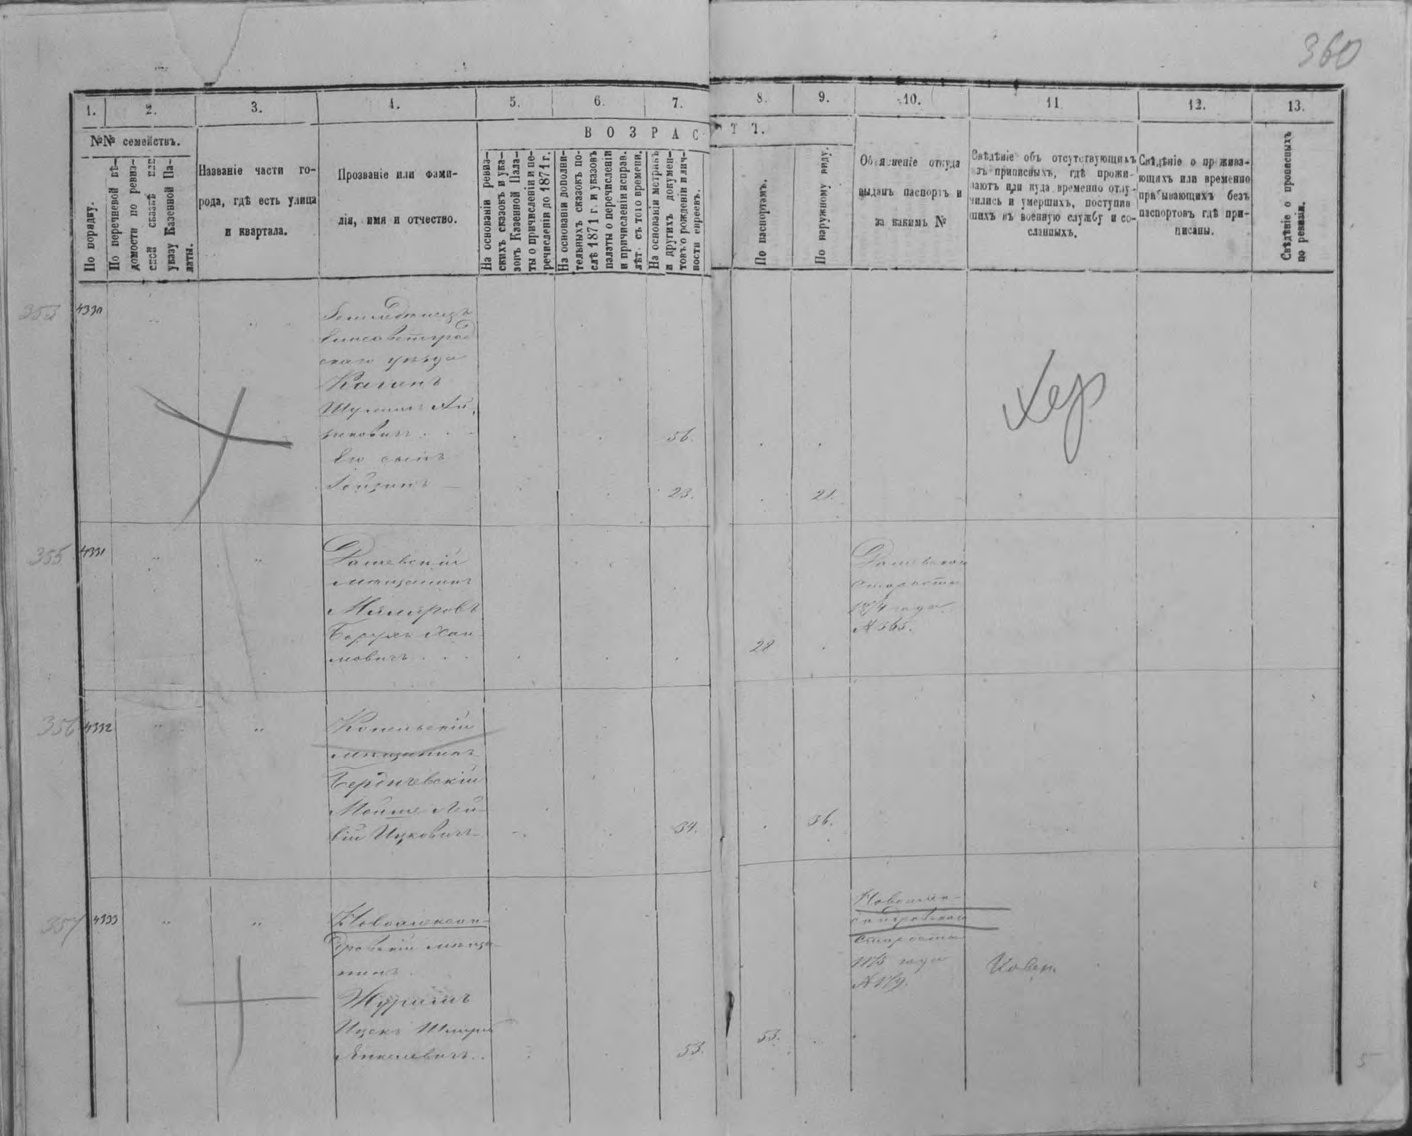 360
1. 2. 3. 4. 5. 6. 7. 8. 9. 10. 11 12. 13.
№№ семействъ.
По порядку.
По перечневой вѣ-
домости по ревиз-
ской сказкѣ или
указу Казенной Па-
латы.
Названіе части го-
рода, гдѣ есть улица
и квартала.
Прозваніе или фами-
лія, имя и отчество.
ВОЗРАСТЪ.
На основаніи ревиз-
скихъ сказокъ и ука-
зовъ Казенной Пала-
ты о причисленіи и пе-
речисленіи до 1871 г.
На основаніи дополни-
тельныхъ сказокъ по-
слѣ 1871 г. и указовъ
палаты о перечисленіи
и причисленіи исправ.
лѣт. съ того времени.
На основаніи метрикъ
и другихъ докумен-
товъ о рожденіи и лич-
ности евреевъ.
По паспортамъ.
По наружному виду.
Объясненіе откуда
выданъ паспортъ и
за какимъ №
Свѣдѣніе объ отсутствующихъ
изъ приписныхъ, гдѣ прожи-
ваютъ или куда временно отлу-
чились и умершихъ, поступив
шихъ въ военную службу и со-
сланныхъ.
Свѣдѣніе о прожива-
ющихъ или временно
пребывающихъ безъ
паспортовъ гдѣ при-
писаны.
Свѣдѣніе о прописныхъ
по ревизіи.
353 4330
Земледѣлецъ
Елисаветград
скаго уѣзда
Каганъ
Шулимъ Ай
зиковичъ 56.
Его сынъ
23. 21.
Хер
355 4331
Дашевскій
мѣщанинъ
Маляровъ
Борухъ Хаи
мовичъ
28
Дашевскаго
старосты
1874 года
№ 565.
356 4332
мѣщанинъ
Бердичевскій
Мойше Лей
Ицковичъ 34. 36.
357 4333
Новоалексан-
дровскій мѣща
нинъ
Ицекъ
53. 53.
Новоалек-
сандровскаго
старосты
1873 года
№ 179.
Ковен.
5